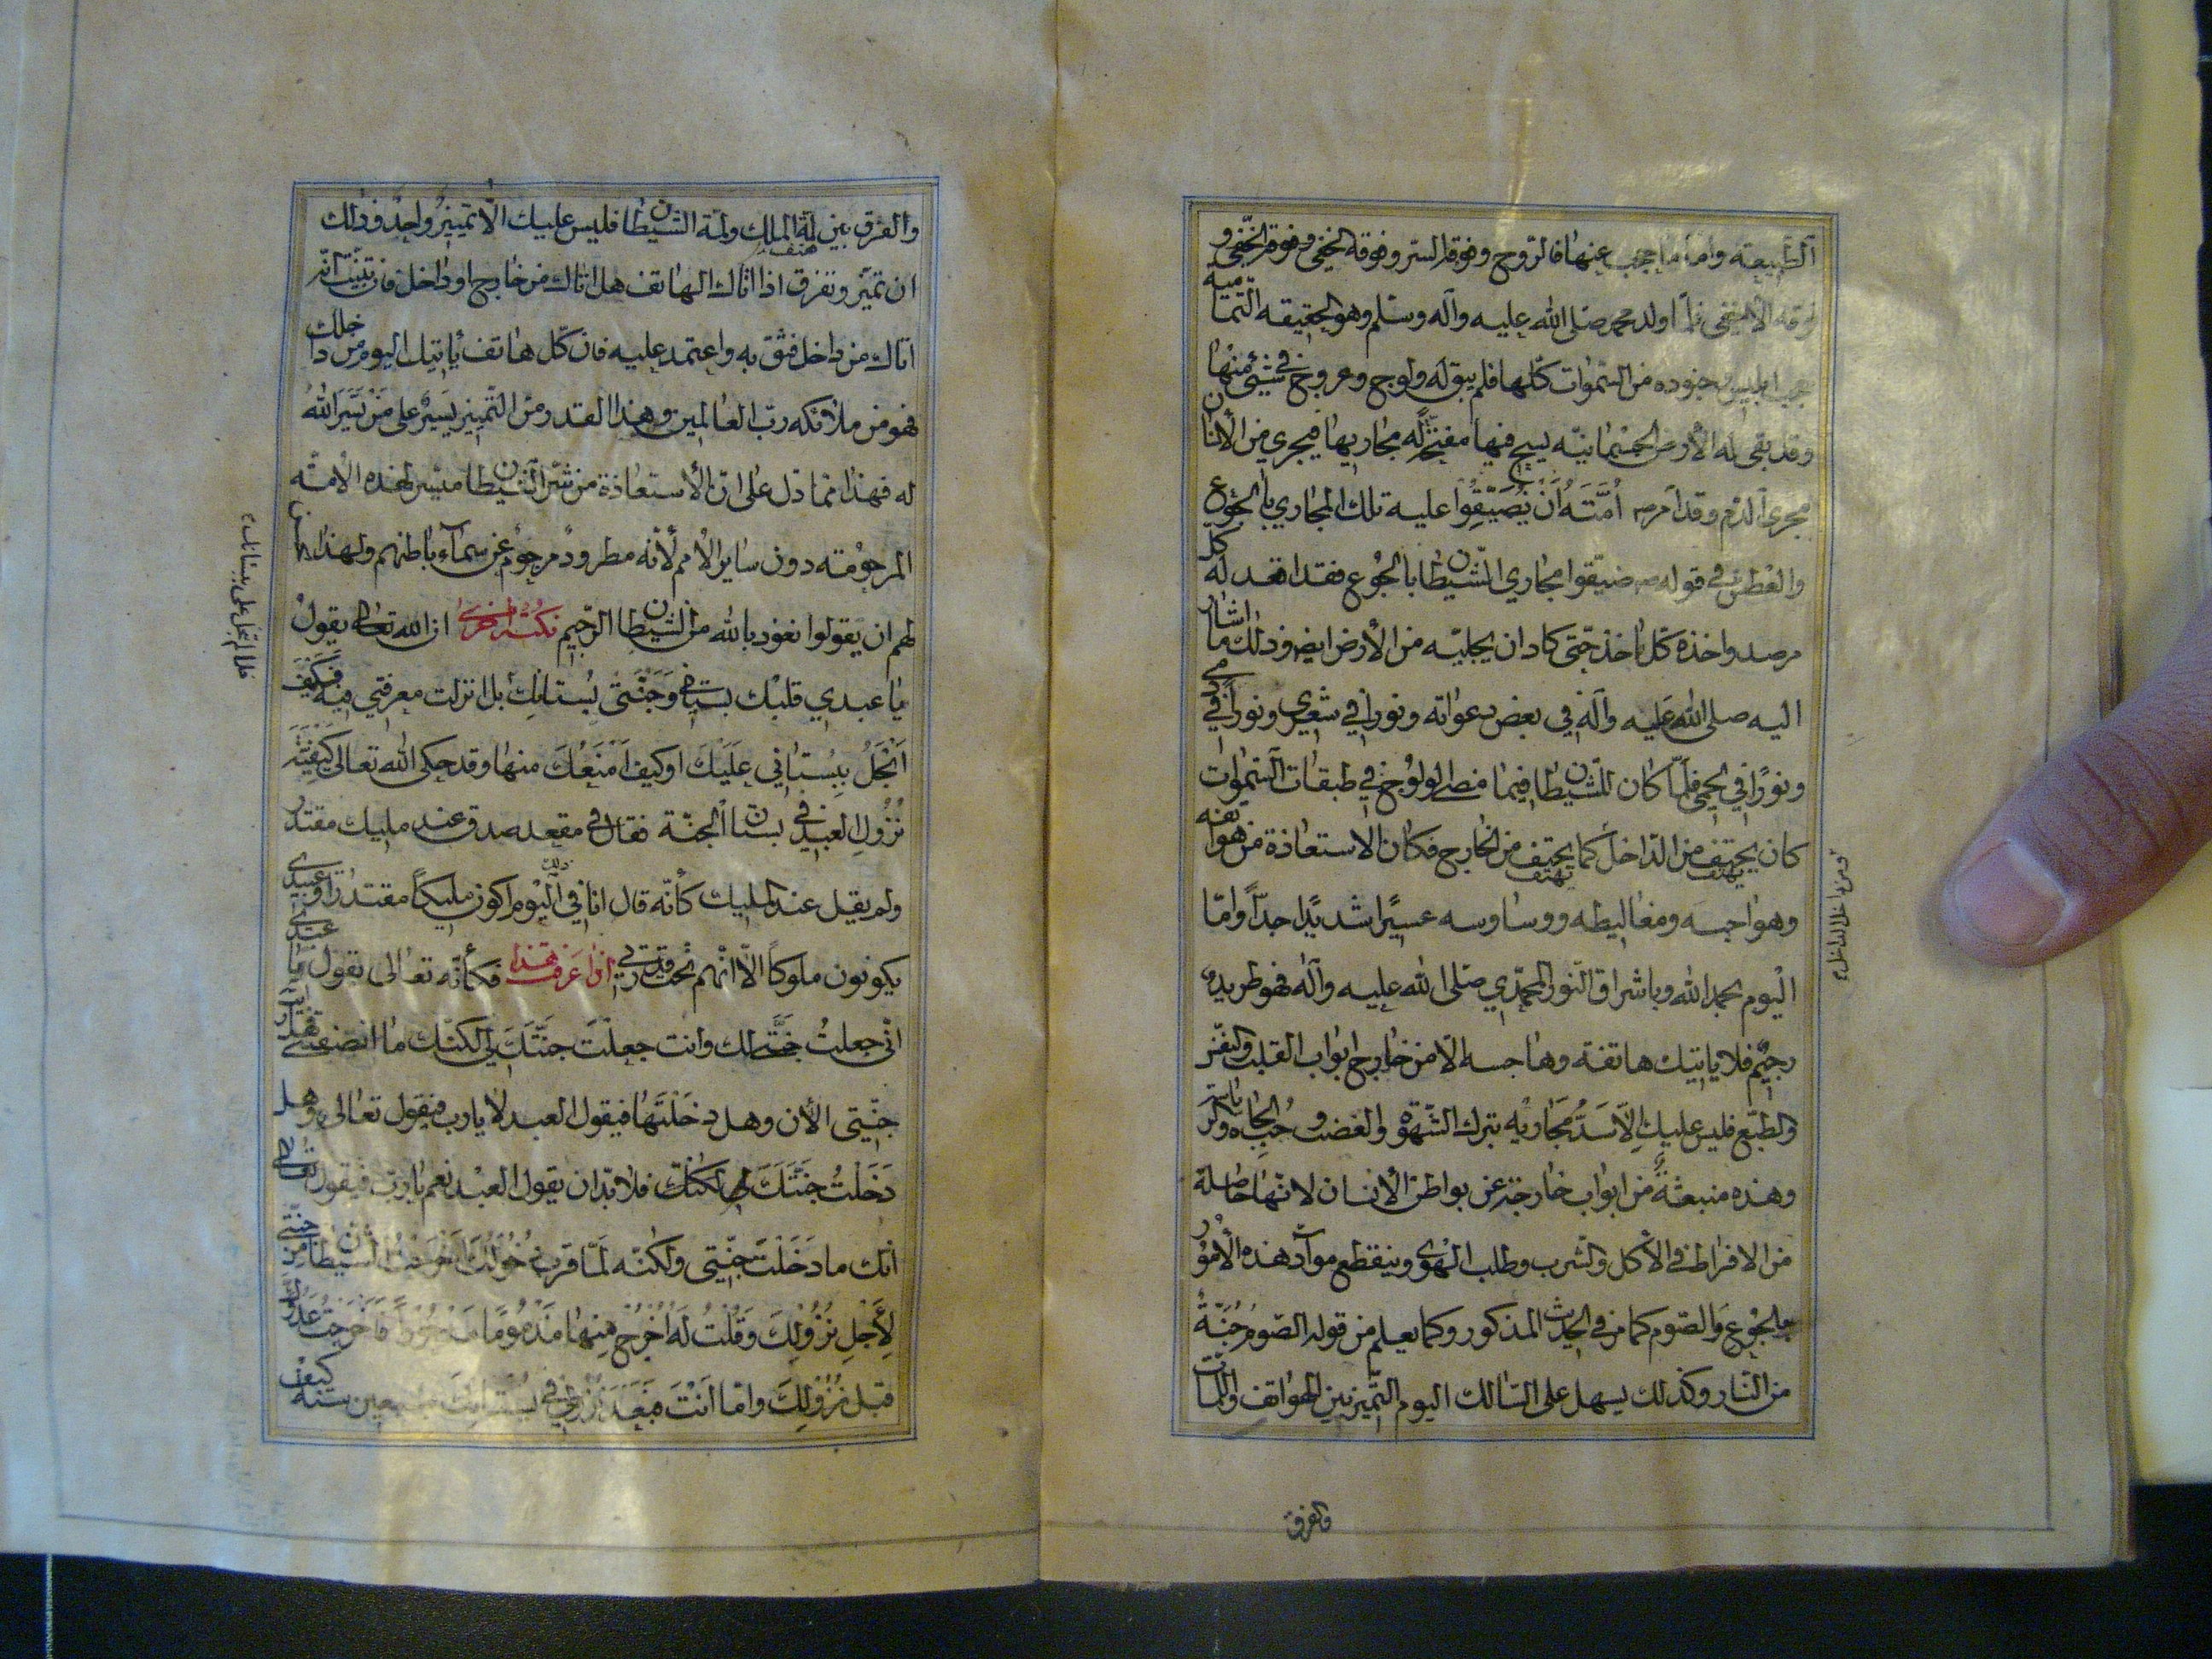 الطبيعة واما ما حجب عنها فالروح وفوقه السر وفوقه الخفي وفوق الخفي و
فوقه الاخفى فلما ولد محمد صلى الله عليه وآله وسلم وهو الحقيقه التمامية
حجب ابليس وجنوده من السموات كلها فلم يبق له ولوج وعروج في شئ منها
وقد بقى له الأرض الجسمانيّه يسيح فيها مفتحة له مجاريها فيجري من الأنسان
مجرى الدم وقد أمر ص أُمَّتَه أَنْ يُضَيِّقُوا عليه تلك المجاري بالجوع
والعطش في قوله ص ضيّقوا مجاري الشيطان بالجوع فقد اقعد له كل
مرصد واخذه كلّ مأخذ حتى كاد ان يجليه من الأرض ايض وذلك ما اشار
اليه صلى الله عليه وآله في بعض دعواته ونورا في شعري ونورا في دمي
ونورًا في لحمي فلمّا كان للشيطان فيما مضى الولوج في طبقات السموات
كان يهتف من الداخل كما يهتف من الخارج فكان الاستعاذة من هواتفه
وهواجسه ومغاليطه ووساوسه عسيرًا شديدًا جدّاً وامّا
اليوم بحمد الله وباشراق النور المحمّدي صلى الله عليه وآله فهو طريد
رجيم فلا ياتيك هاتفه وهاجسه الا من خارج ابواب القلب والنفس
والطبع فليس عليك الّا سَدُّ مَجَاريْهِ بترك الشهوة والغضب وحُبِّ الجاه
وهذه منبعثةٌ من ابواب خارجة عن بواطن الأنسان لانّها حاصلة
من الافراط في الأكل والشرب وطلب الهوى وينقطع موادّ هذه الأمور
بالجوع والصّوم كما مر في الحديث المذكور وكما يعلم من قوله الصّوم جُنّةٌ
من النّار وكذلك يسهل على السّالك اليوم التّميز بين الهواتف واللمّات
والفرق
والفرق بين لمّة الملك ولمّة الشيطان فليس عليك الّا تمييز واحد وذلك
ان تميّز وتفرق اذا اتاك الهاتف هل اتاك من خارج او داخل فان تبيّنت انّه
اتاك من داخل فثق به واعتمد عليه فان كلّ هاتف يأتيك اليوم من داخلك
فهو من ملائكة ربّ العالمين وهذا القدر من التّمييز يَسيْرٌ على مَنْ يَسَّرَ اللهُ
له فهذا ممّا دلّ على انّ الأستعاذة من شرّ الشيطان متيسّر لهذه الأمّة
المرحومة دون ساير الأمم لأنّه مطرودٌ مرجومٌ عن سمآء باطنهم ولهذا امر
لهم ان يقولوا نعوذ بالله من الشيطان الرّجيم نكتة اخرى ان الله تعالى يقول
يا عبدي قلبك بستاني وَجَنَّتي بُستانك بل انزلت معرفتي فيه فَكَيْفَ
أَبْخَلُ بِبُسْتاني عَلَيْكَ او كيف أَمْنَعُكَ منها وقد حكى الله تعالى كَيْفِيَّةَ
نُزُولِ العبد في بستان الجنّة فقال في مقعد صدق عند مليك مقتدر
ولم يقل عند المليك كأنّه قال انا في ذلك اليوم اكون مليكاً مقتدرا وعبيدي
يكونون ملوكاً الّا انهم تحت قدرتي اذا عرفت هذا فكأنّه تعالى يقول يا عبدي
انّي جعلتُ جَنَّتي لك وانت جعلت جَنَّتَكَ لي لكنّك ما انصفتني
جنّتي الأن وهل دخلتَها فيقول العبد لا يا رب فيقول تعالى وهل
دَخَلْتُ جَنَّتَكَ فلا بدّ ان يقول العبد نعم يا ربّ فيقول تعالى
انّك ما دَخَلْتَ جنّتي ولكنّه لمّا قرب دُخُولُكَ أَخْرَجْتُ الشيطان من جنّتي
لِأَجْلِ نُزُوْلِكَ وَقُلْتُ لَه اُخْرُجْ مِنْها مَذْمُومًا مَدْحُوْراً فَأَخْرَجْتُ عَدُوَّكَ
قبل نُزُوْلِكَ وامّا اَنْتَ فبَعْدَ نُزولي في بُسْتانِكَ سبعين سنة كيف